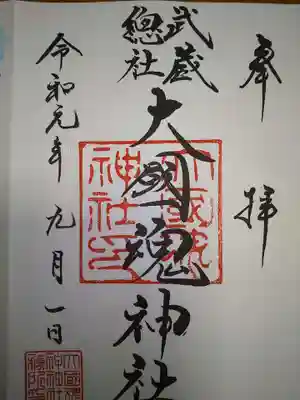 奉拝
武蔵
總社
大國魂神社
令和元年九月一日
大國魂
神社印